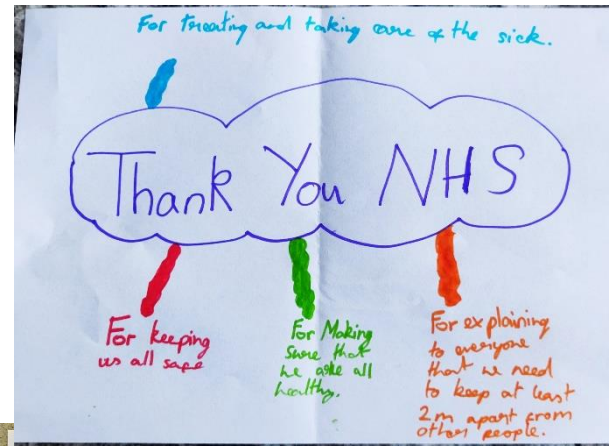 For treating and taking care of the sick.
Thank You NHS
For keeping
us all safe
For Making
sure that
we are all
healthy.
For explaining
to everyone
that we need
to keep at least
2m apart from
other people.